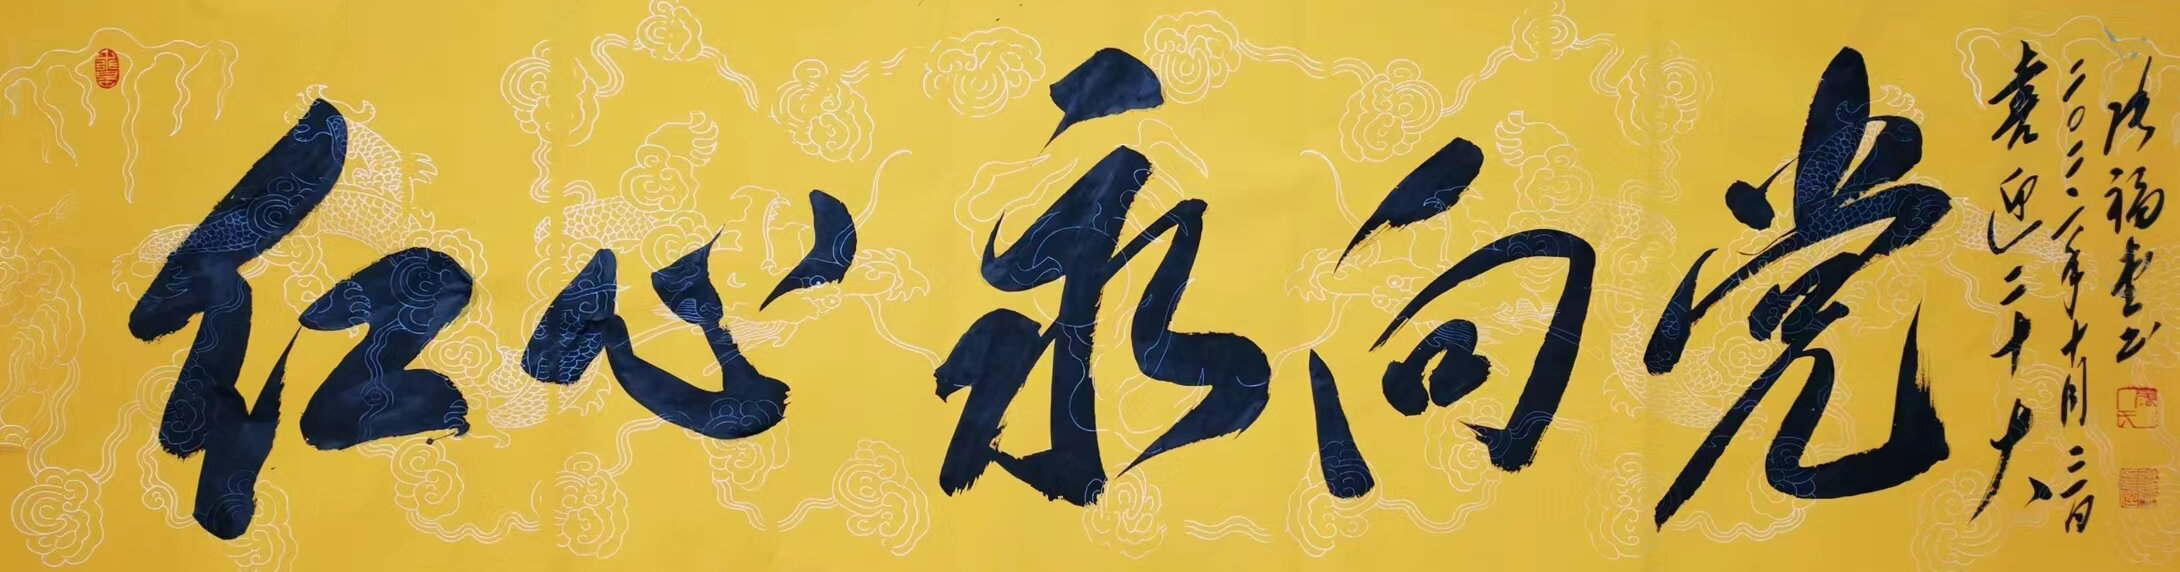 红心永向党
喜迎二十大
二〇二二年十月二日
福书